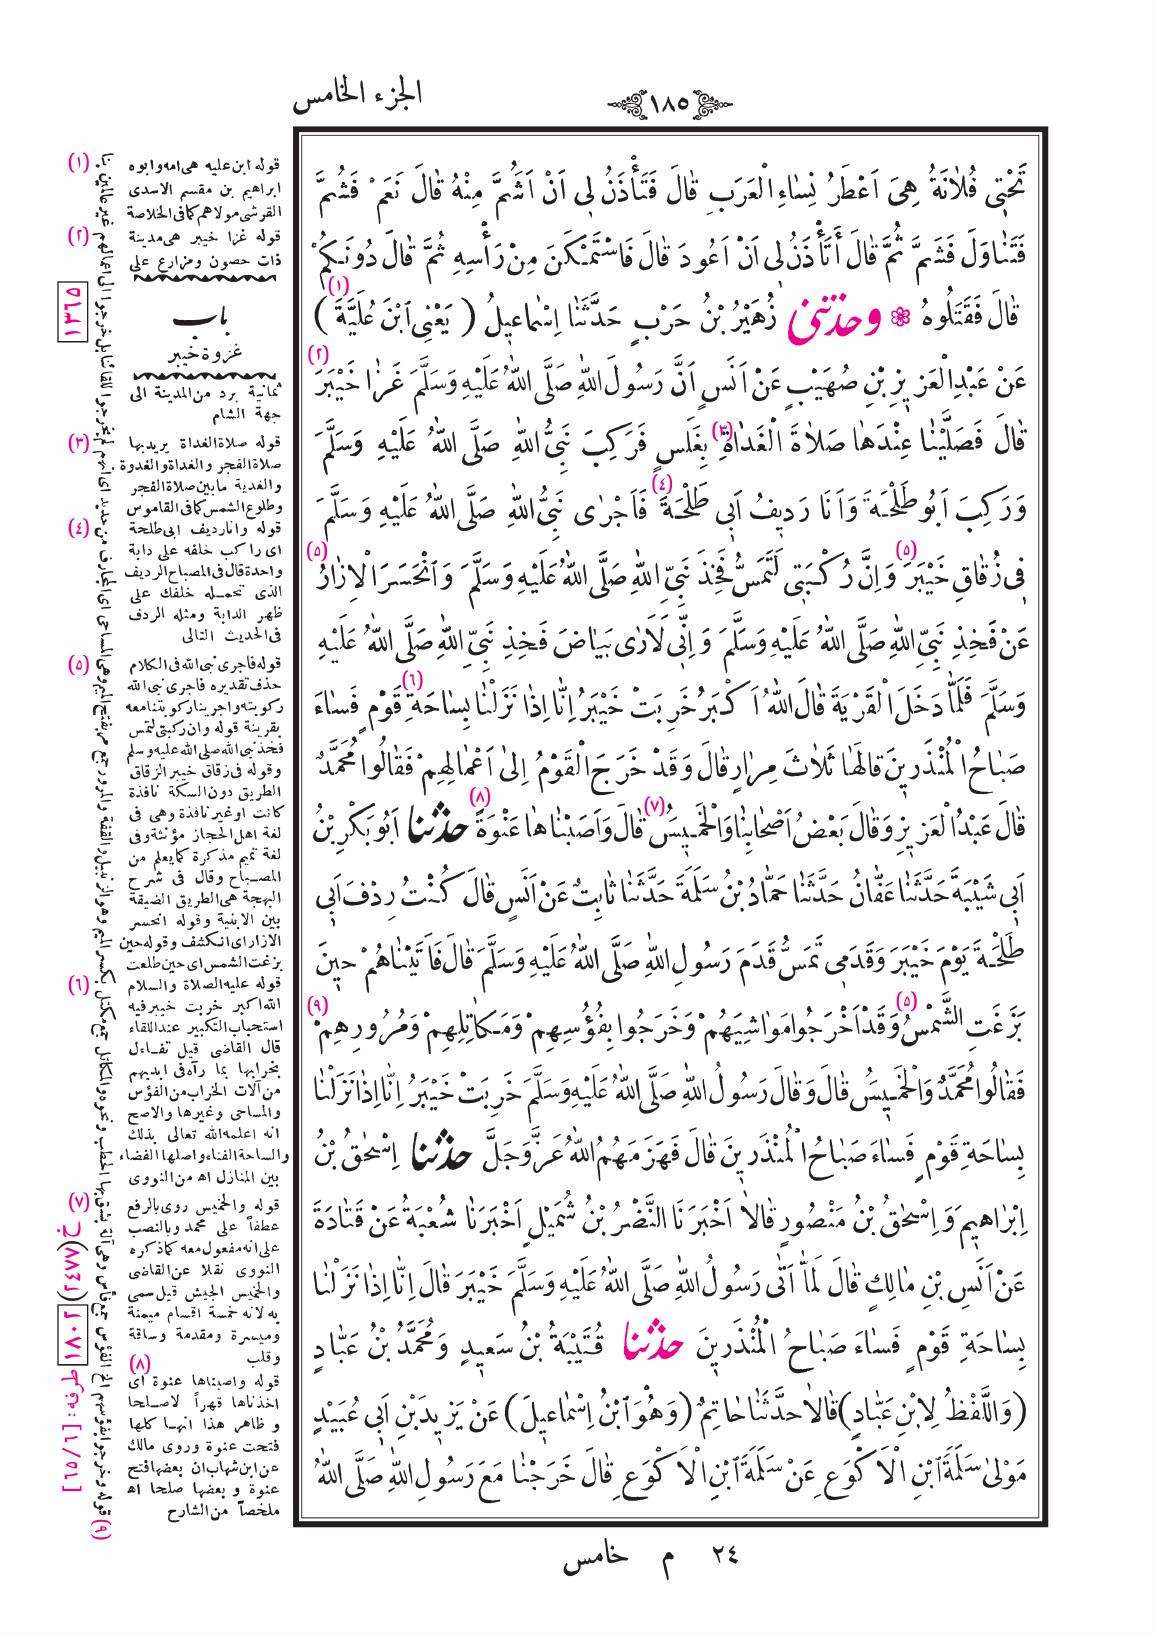 الجزء الخامس
١٨٥
تَحْتِي فُلَانَةُ هِيَ اَعْطَرُ نِسَاءِ الْعَرَبِ قَالَ فَتَأْذَنُ لِي اَنْ اَشُمَّ مِنْهُ قَالَ نَعَمْ فَشُمَّ
فَتَنَاوَلَ فَشَمَّ ثُمَّ قَالَ أَتَأْذَنُ لِي اَنْ اَعُودَ قَالَ فَاسْتَمْكَنَ مِنْ رَأْسِهِ ثُمَّ قَالَ دُونَكُمْ
قَالَ فَقَتَلُوهُ ❁ وحدثني زُهَيْرُ بْنُ حَرْبٍ حَدَّثَنَا اِسْمَاعِيلُ ( يَعْنِي ابْنَ عُلَيَّةَ ) (١)
عَنْ عَبْدِ الْعَزِيزِ بْنِ صُهَيْبٍ عَنْ اَنَسٍ اَنَّ رَسُولَ اللهِ صَلَّى اللهُ عَلَيْهِ وَسَلَّمَ غَزَا خَيْبَرَ (٢)
قَالَ فَصَلَّيْنَا عِنْدَهَا صَلَاةَ الْغَدَاةِ (٣) بِغَلَسٍ فَرَكِبَ نَبِيُّ اللهِ صَلَّى اللهُ عَلَيْهِ وَسَلَّمَ
وَرَكِبَ اَبُو طَلْحَةَ وَاَنَا رَدِيفُ اَبِي طَلْحَةَ (٤) فَاَجْرٰى نَبِيُّ اللهِ صَلَّى اللهُ عَلَيْهِ وَسَلَّمَ
فِي زُقَاقِ خَيْبَرَ (٥) وَاِنَّ رُكْبَتِي لَتَمَسُّ فَخِذَ نَبِيِّ اللهِ صَلَّى اللهُ عَلَيْهِ وَسَلَّمَ وَانْحَسَرَ الْاِزَارُ (٥)
عَنْ فَخِذِ نَبِيِّ اللهِ صَلَّى اللهُ عَلَيْهِ وَسَلَّمَ وَاِنِّي لَاَرٰى بَيَاضَ فَخِذِ نَبِيِّ اللهِ صَلَّى اللهُ عَلَيْهِ
وَسَلَّمَ فَلَمَّا دَخَلَ الْقَرْيَةَ قَالَ اللهُ اَكْبَرُ خَرِبَتْ خَيْبَرُ اِنَّا اِذَا نَزَلْنَا بِسَاحَةِ (٦) قَوْمٍ فَسَاءَ
صَبَاحُ الْمُنْذَرِينَ قَالَهَا ثَلَاثَ مِرَارٍ قَالَ وَقَدْ خَرَجَ الْقَوْمُ اِلٰى اَعْمَالِهِمْ فَقَالُوا مُحَمَّدٌ
قَالَ عَبْدُ الْعَزِيزِ وَقَالَ بَعْضُ اَصْحَابِنَا وَالْخَمِيسُ (٧) قَالَ وَاَصَبْنَاهَا عَنْوَةً (٨) حدثنا اَبُو بَكْرِ بْنُ
اَبِي شَيْبَةَ حَدَّثَنَا عَفَّانُ حَدَّثَنَا حَمَّادُ بْنُ سَلَمَةَ حَدَّثَنَا ثَابِتٌ عَنْ اَنَسٍ قَالَ كُنْتُ رِدْفَ اَبِي
طَلْحَةَ يَوْمَ خَيْبَرَ وَقَدَمِي تَمَسُّ قَدَمَ رَسُولِ اللهِ صَلَّى اللهُ عَلَيْهِ وَسَلَّمَ قَالَ فَاَتَيْنَاهُمْ حِينَ
بَزَغَتِ الشَّمْسُ (٥) وَقَدْ اَخْرَجُوا مَوَاشِيَهُمْ وَخَرَجُوا بِفُؤُسِهِمْ وَمَكَاتِلِهِمْ وَمُرُورِهِمْ (٩)
فَقَالُوا مُحَمَّدٌ وَالْخَمِيسُ قَالَ وَقَالَ رَسُولُ اللهِ صَلَّى اللهُ عَلَيْهِ وَسَلَّمَ خَرِبَتْ خَيْبَرُ اِنَّا اِذَا نَزَلْنَا
بِسَاحَةِ قَوْمٍ فَسَاءَ صَبَاحُ الْمُنْذَرِينَ قَالَ فَهَزَمَهُمُ اللهُ عَزَّ وَجَلَّ حدثنا اِسْحٰقُ بْنُ
اِبْرَاهِيمَ وَاِسْحٰقُ بْنُ مَنْصُورٍ قَالَا اَخْبَرَنَا النَّضْرُ بْنُ شُمَيْلٍ اَخْبَرَنَا شُعْبَةُ عَنْ قَتَادَةَ
عَنْ اَنَسِ بْنِ مَالِكٍ قَالَ لَمَّا اَتٰى رَسُولُ اللهِ صَلَّى اللهُ عَلَيْهِ وَسَلَّمَ خَيْبَرَ قَالَ اِنَّا اِذَا نَزَلْنَا
بِسَاحَةِ قَوْمٍ فَسَاءَ صَبَاحُ الْمُنْذَرِينَ حدثنا قُتَيْبَةُ بْنُ سَعِيدٍ وَمُحَمَّدُ بْنُ عَبَّادٍ
(وَاللَّفْظُ لِابْنِ عَبَّادٍ) قَالَا حَدَّثَنَا حَاتِمٌ (وَهُوَ ابْنُ اِسْمَاعِيلَ) عَنْ يَزِيدَ بْنِ اَبِي عُبَيْدٍ
مَوْلٰى سَلَمَةَ ابْنِ الْاَكْوَعِ عَنْ سَلَمَةَ ابْنِ الْاَكْوَعِ قَالَ خَرَجْنَا مَعَ رَسُولِ اللهِ صَلَّى اللهُ
٢٤ م خامس
(١) قوله ابن علیه هی امه وابوه
ابراهيم بن مقسم الاسدی
القرشی مولاهم کما فی الخلاصة
(٢) قوله غزا خيبر هی مدینة
ذات حصون ومزارع علی
١٣٦٥
باب
غزوة خيبر
ثمانیة برد من المدینة الی
جهة الشام
(٣) قوله صلاة الغداة یرید بها
صلاة الفجر والغداة والغدوة
والغدیة مابین صلاة الفجر
وطلوع الشمس کما فی القاموس
(٤) قوله وانا ردیف ابی طلحة
ای راکب خلفه علی دابة
واحدة قال فی المصباح الردیف
الذی تحمله خلفك علی
ظهر الدابة ومثله الردف
فی الحدیث التالی
(٥) قوله فاجری نبی الله فی الکلام
حذف تقدیره فاجری نبی الله
رکوبته واجرینا رکوبتنا معه
بقرینة قوله وان رکبتی لتمس
فخذ نبی الله صلی الله علیه وسلم
وقوله فی زقاق خیبر الزقاق
الطریق دون السکة نافذة
کانت او غیر نافذة وهی فی
لغة اهل الحجاز مؤنثة وفی
لغة تمیم مذکرة کما یعلم من
المصباح وقال فی شرح
البهجة هی الطریق الضیقة
بین الابنیة وقوله انحسر
الازار ای انکشف وقوله حین
بزغت الشمس ای حین طلعت
(٦) قوله علیه الصلاة والسلام
الله اکبر خربت خیبر فیه
استحباب التکبیر عند اللقاء
قال القاضی قیل تفاءل
بخرابها بما رآه فی ایدیهم
من آلات الخراب من الفؤس
والمساحی وغیرها والاصح
انه اعلمه الله تعالی بذلك
والساحة الفناء واصلها الفضاء
بین المنازل اه من النووی
(٧) قوله والخمیس روی بالرفع
عطفاً علی محمد وبالنصب
علی انه مفعول معه کما ذکره
النووی نقلا عن القاضی
والخمیس الجیش قیل سمی
به لانه خمسة اقسام میمنة
ومیسرة ومقدمة وساقة
وقلب
(٨)
قوله واصبناها عنوة ای
اخذناها قهراً لاصلحا
وظاهر هذا انها کلها
فتحت عنوة وروی مالك
عن ابن شهاب ان بعضها فتح
عنوة و بعضها صلحا اه
ملخصاً من الشارح
(٩) قوله وخرجوا بفؤسهم الخ الفؤس جمع فأس وهی آلة یشق بها الحطب ونحوه والمکاتل جمع مکتل بکسر المیم وهو الزنبیل والقفة والمرور جمع مر بفتح المیم وهی المساحی ای المجارف من حدید ای انهم لم یخرجوا للقائنا بل خرجوا الی اعمالهم غیر عالمین بنا
ح(٢٤٧٧)
١٨٠٢
طرفه: [٦/٦٥ ]